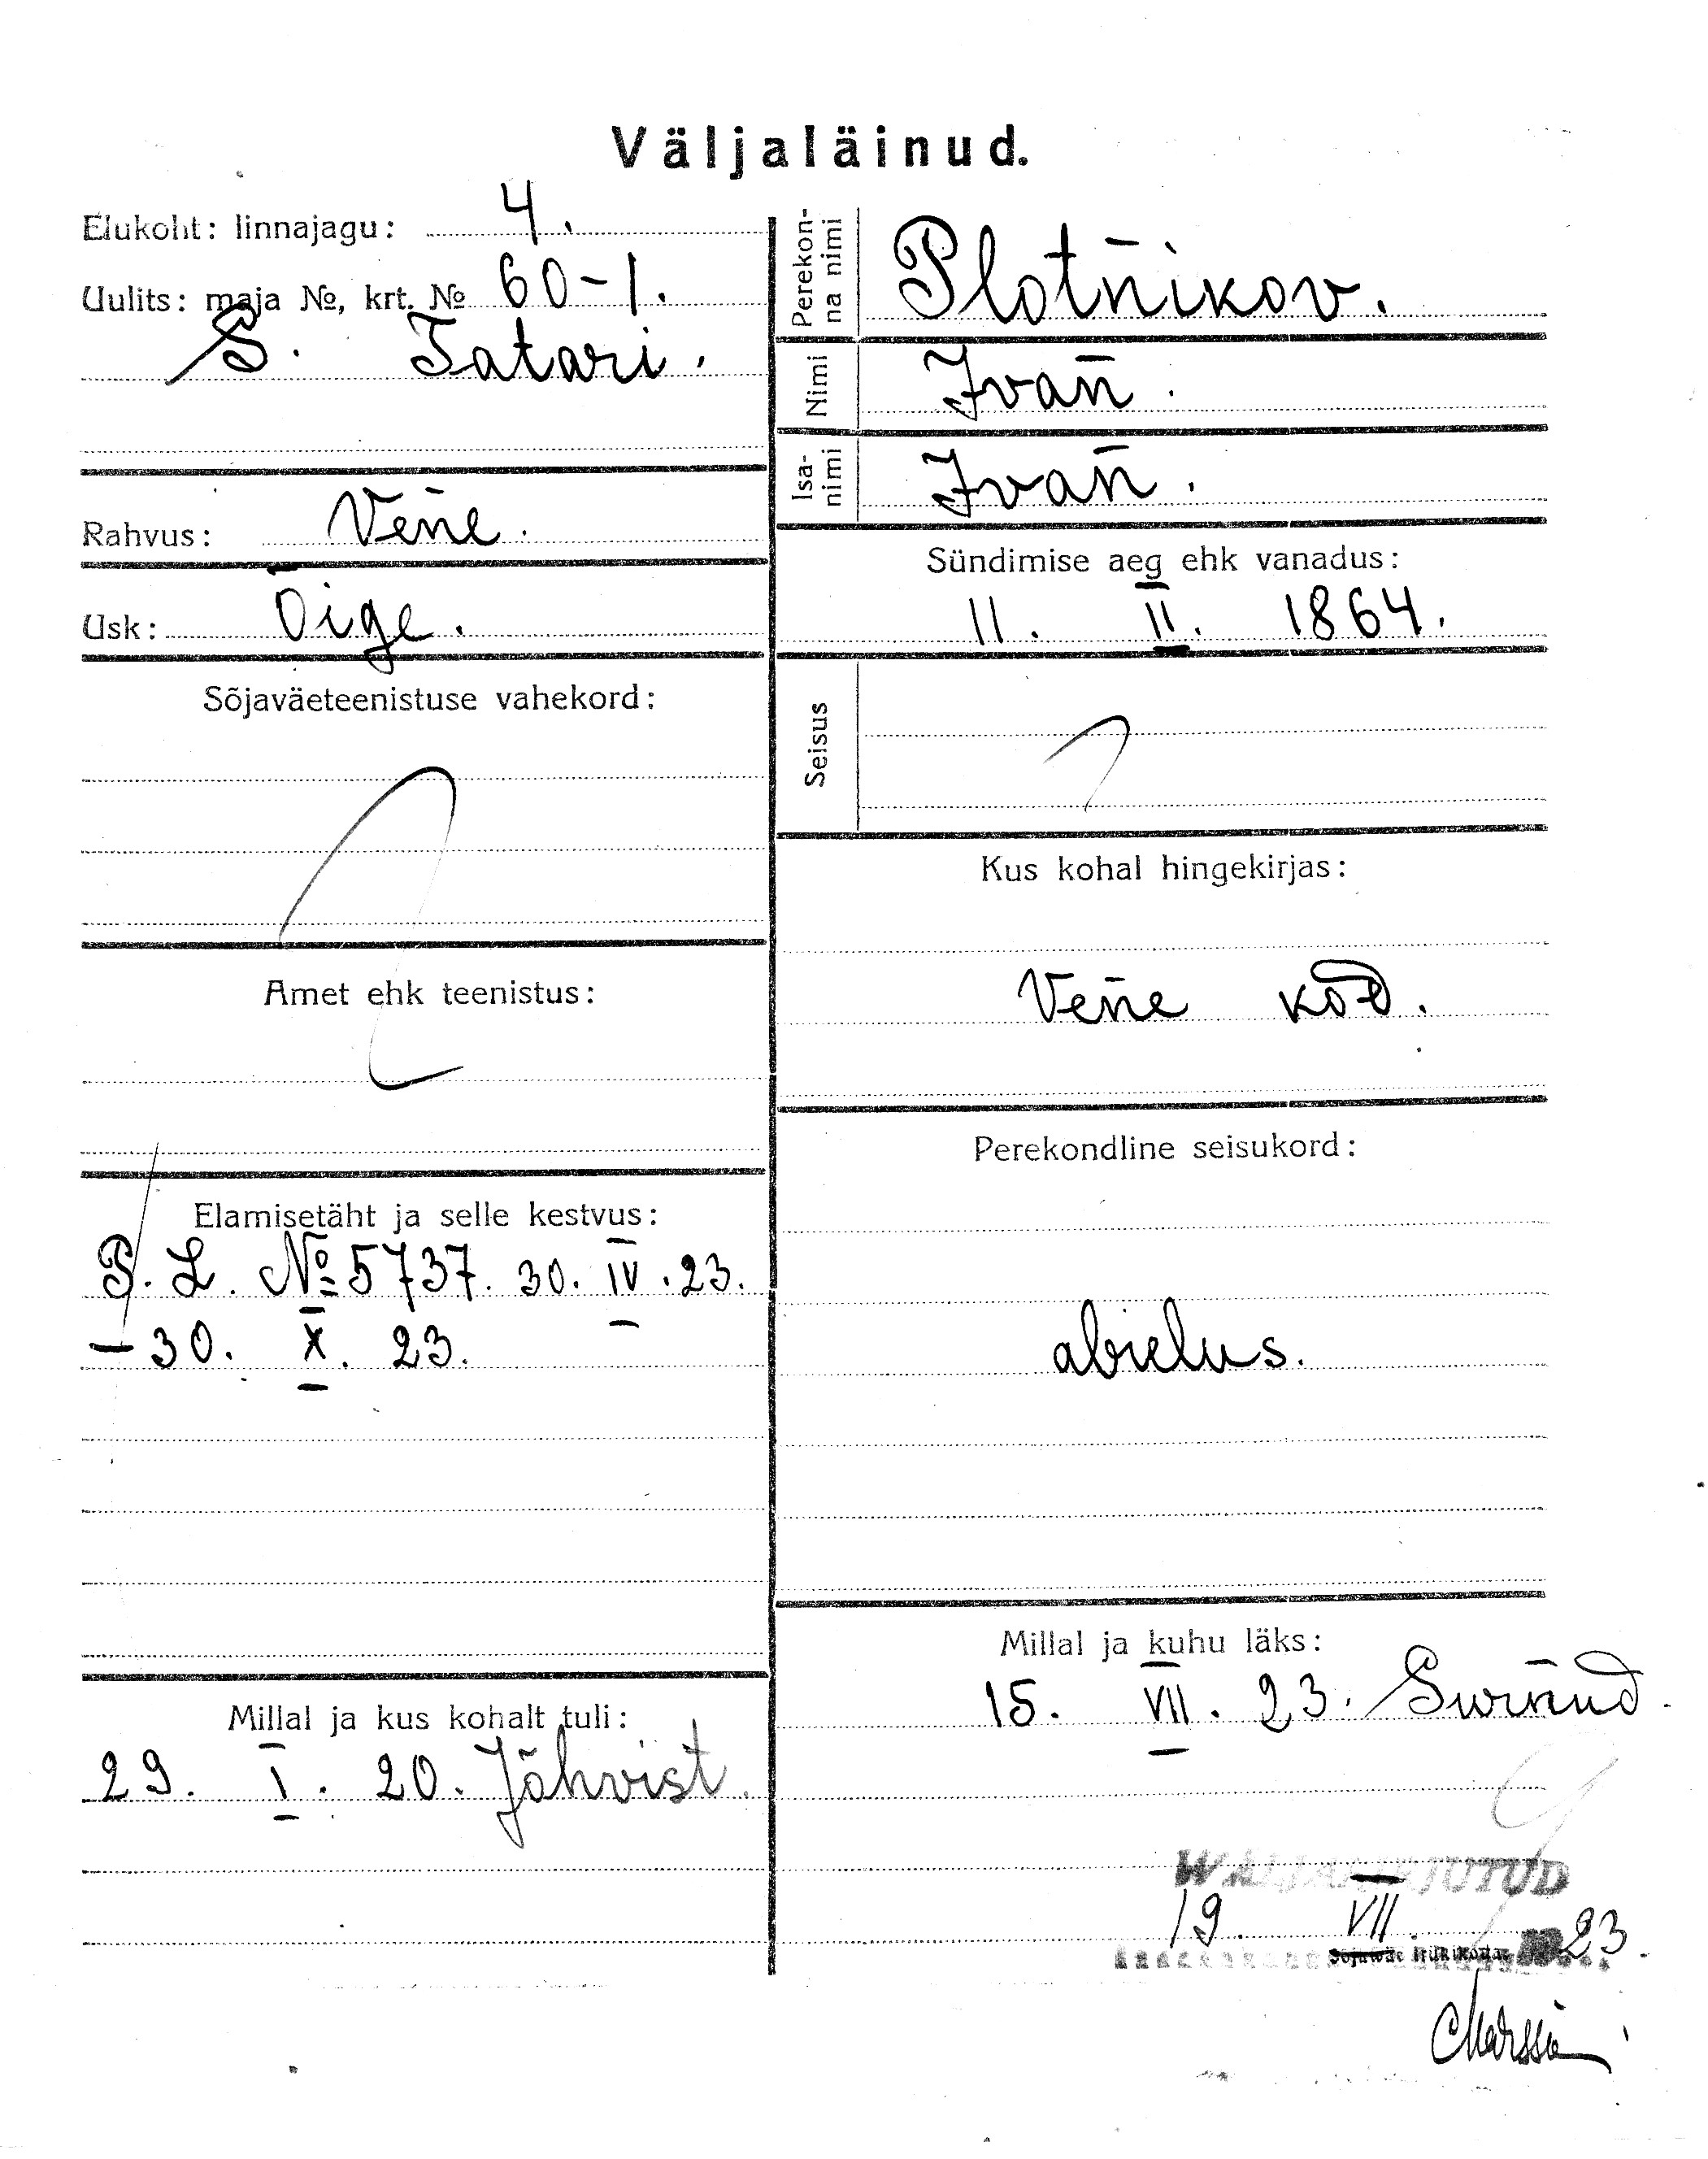 Väljaläinud.
Elukoht: linnajagu: 4.
Uulits: maja №, krt. № 60-1.
S. Tatari.
Rahvus: Vene.
Usk: Õige.
Sõjaväeteenistuse vahekord:
Amet ehk teenistus:
Elamisetäht ja selle kestvus:
P. L. № 5737. 30. IV. 23.
- 30. X. 23.
Millal ja kus kohalt tuli:
29. I. 20. Jõhvist.
Perekon-
na nimi
Plotnikov.
Nimi
Ivan.
Isa-
nimi
Ivan.
Sündimise aeg ehk vanadus:
11. II. 1864.
Seisus
Kus kohal hingekirjas:
Vene kod.
Perekondline seisukord:
abielus.
Millal ja kuhu läks:
15. VII. 23. Surnud.
19. VII. 23.